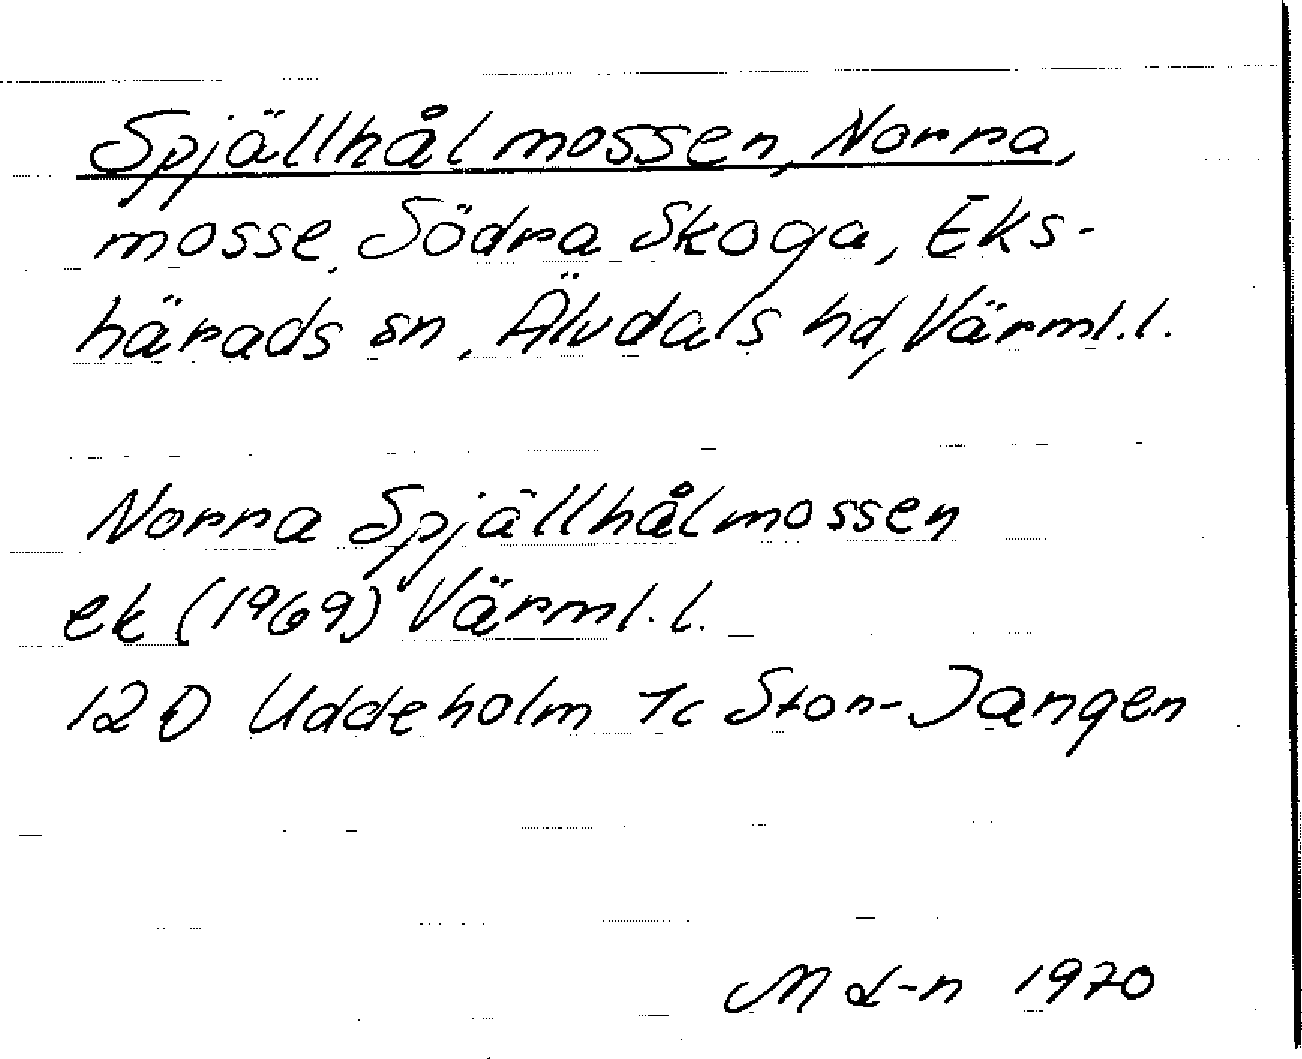 Spjällhålmossen, Norra,
mosse, Södra Skoga, Eks-
härads sn, Älvdals hd, Värml.l.
Norra Spjällhålmossen
ek (1969) Värml.l.
12 D Uddeholm 7c Stor-Jangen
1970